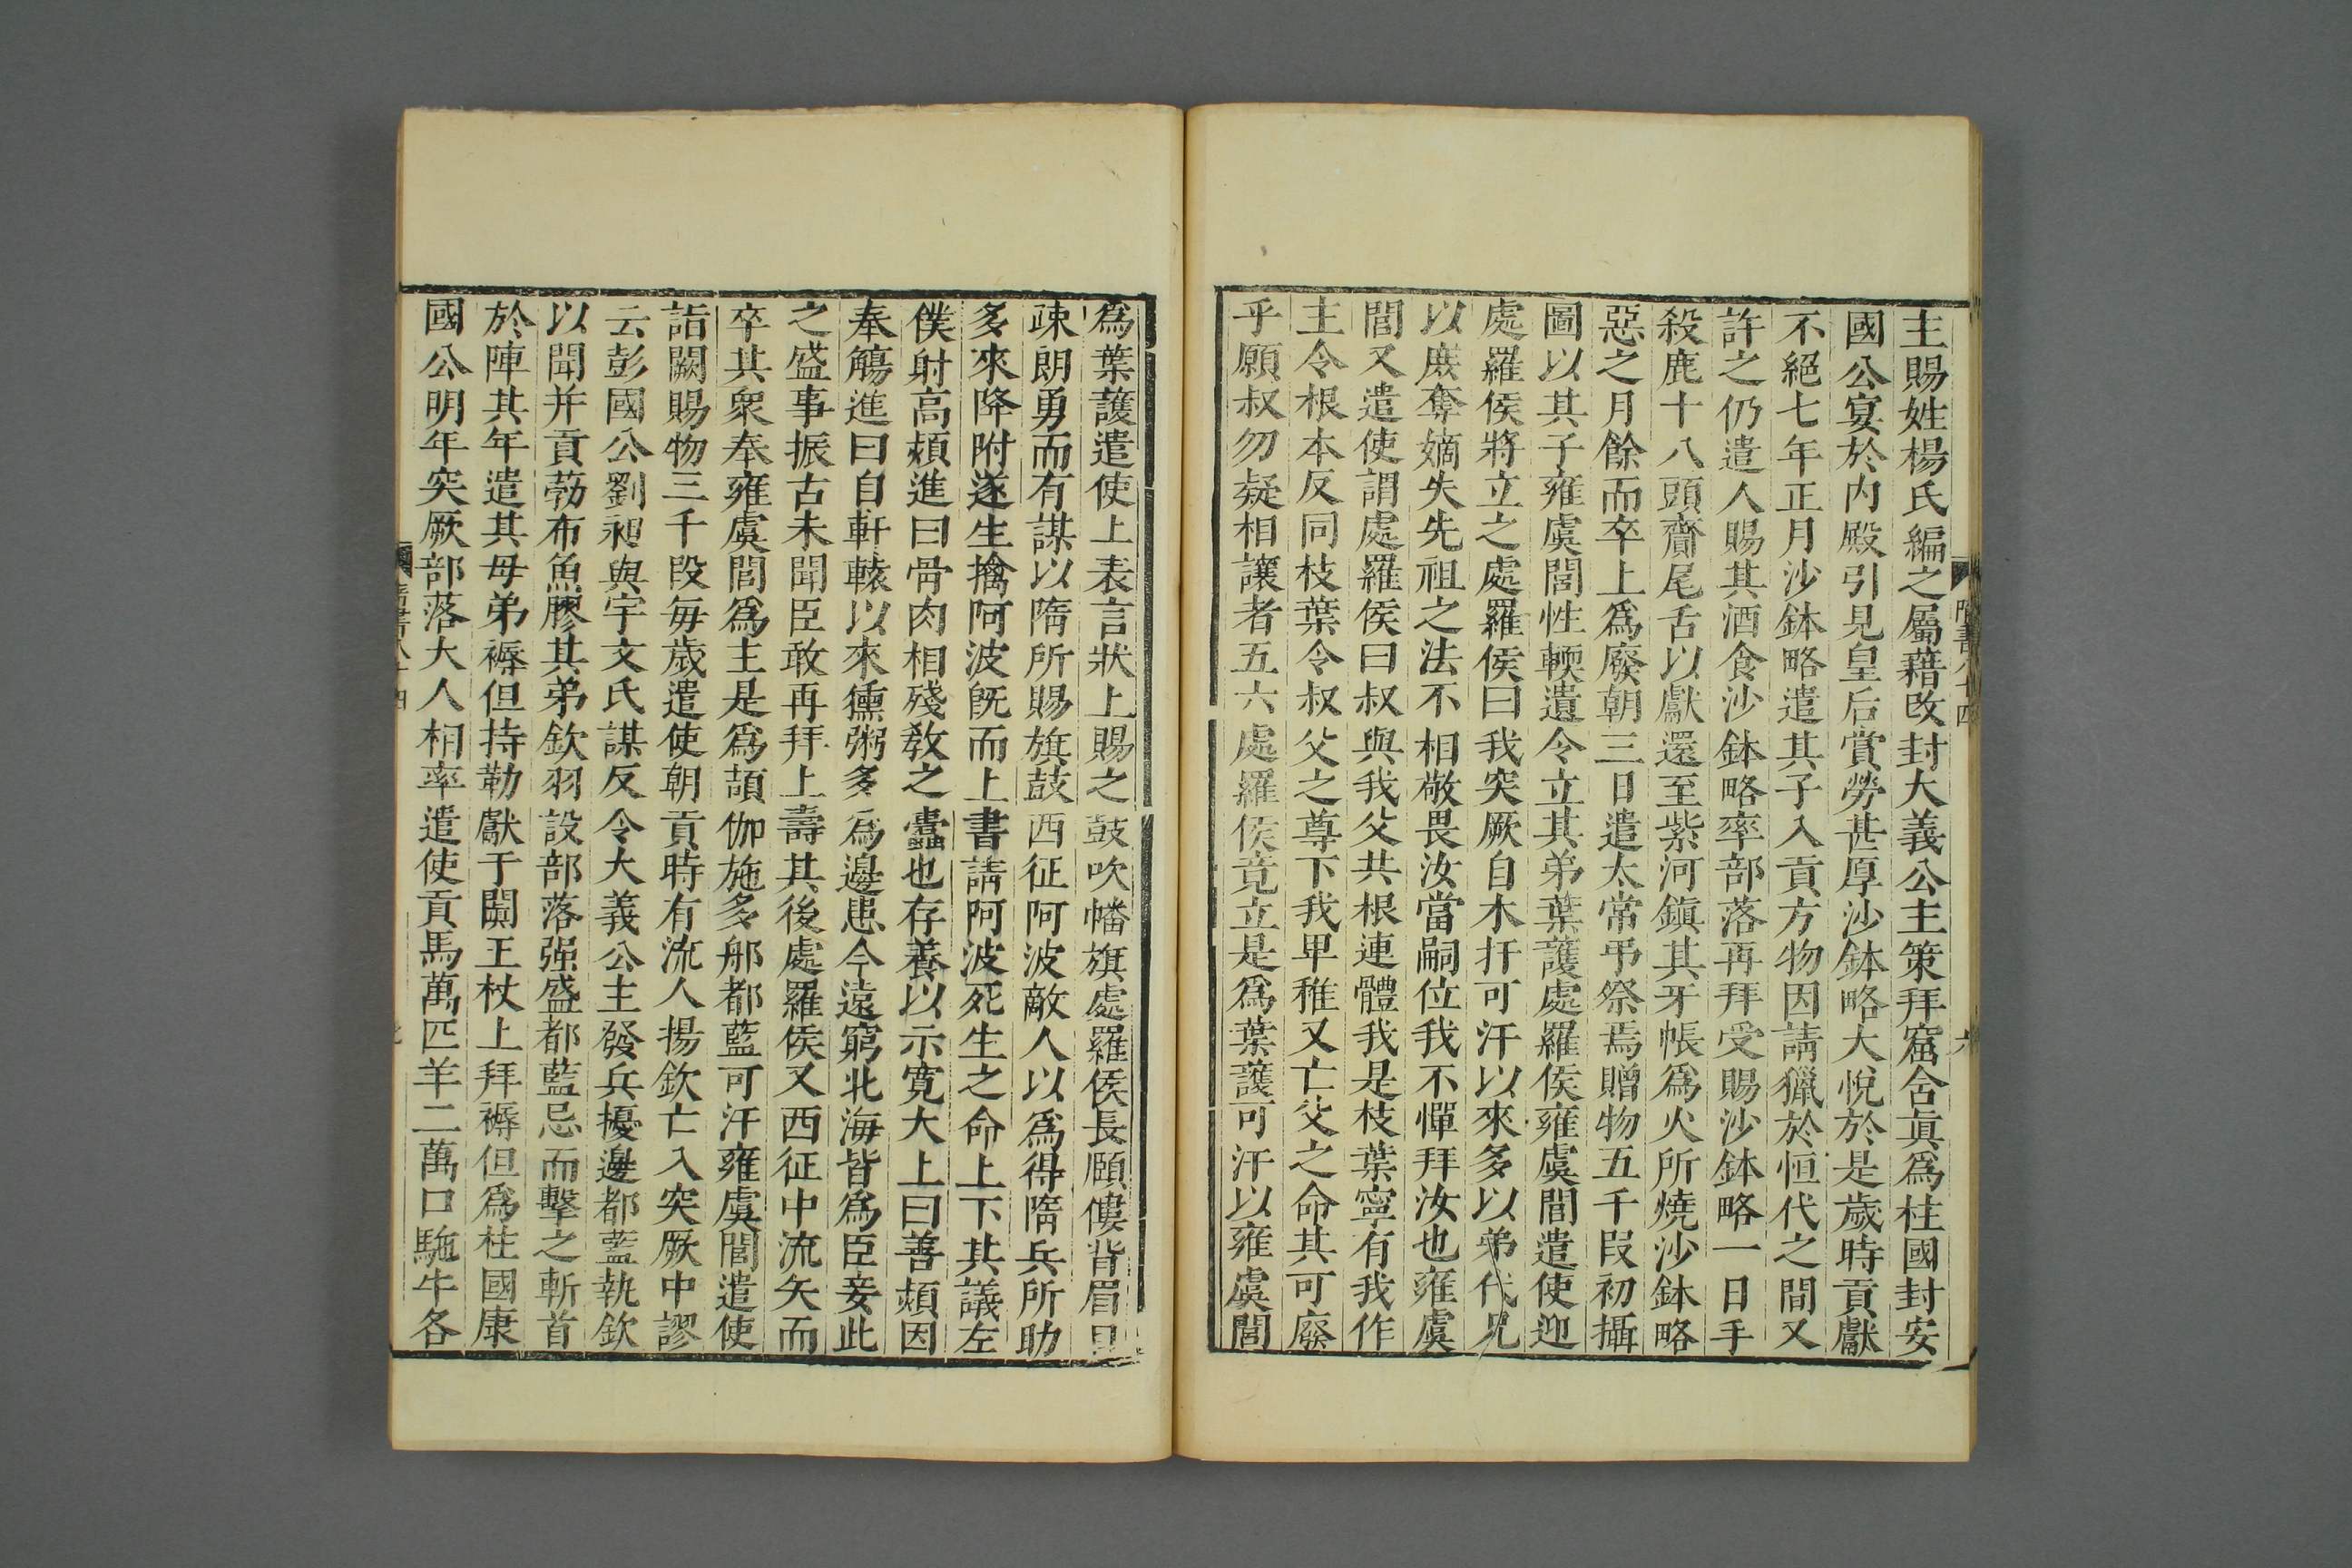 主賜姓楊氏編之屬藉改封大義公主策拜窟舍眞爲柱國封安
國公宴於内殿引見皇后賞勞甚厚沙鉢略大悅於是歲時貢獻
不絕七年正月沙鉢略遣其子入貢方物因請獵於恒代之間又
許之仍遣人賜其酒食沙鉢略率部落再拜受賜沙鉢略一日手
殺鹿十八頭齎尾舌以獻還至紫河鎭其牙帳爲火所燒沙鉢略
惡之月餘而卒上爲廢朝三日遣太常弔祭焉贈物五千段初攝
圖以其子雍虞閭性輭遺令立其弟葉護處羅侯雍虞閭遣使迎
處羅侯將立之處羅侯曰我突厥自木扞可汗以來多以弟代兄
以庶奪嫡失先祖之法不相敬畏汝當嗣位我不憚拜汝也雍虞
閭又遣使謂處羅侯曰叔與我父共根連體我是枝葉寧有我作
主令根本反同枝葉令叔父之尊下我卑稚又亡父之命其可廢
乎願叔勿疑相讓者五六處羅侯竟立是爲葉護可汗以雍虞閭
隋書八十四
六
爲葉護遣使上表言狀上賜之鼓吹幡旗處羅侯長頤僂背眉目
疎朗勇而有謀以隋所賜旗鼓西征阿波敵人以爲得隋兵所助
多來降附遂生擒阿波旣而上書請阿波死生之命上下其議左
僕射高熲進曰骨肉相殘敎之蠹也存養以示寬大上曰善熲因
奉觴進曰自軒轅以來獯粥多爲邊患今遠窮北海皆爲臣妾此
之盛事振古未聞臣敢再拜上壽其後處羅侯又西征中流矢而
卒其衆奉雍虞閭爲主是爲頡伽施多那都藍可汗雍虞閭遣使
詣闕賜物三千段每歲遣使朝貢時有流人揚欽亡入突厥中謬
云彭國公劉昶與宇文氏謀反令大義公主發兵擾邊都藍執欽
以聞并貢葧布魚膠其弟欽羽設部落强盛都藍忌而擊之斬首
於陣其年遣其母弟褥但持勒獻于闐王杖上拜褥但爲柱國康
國公明年突厥部落大人相率遣使貢馬萬匹羊二萬口駞牛各